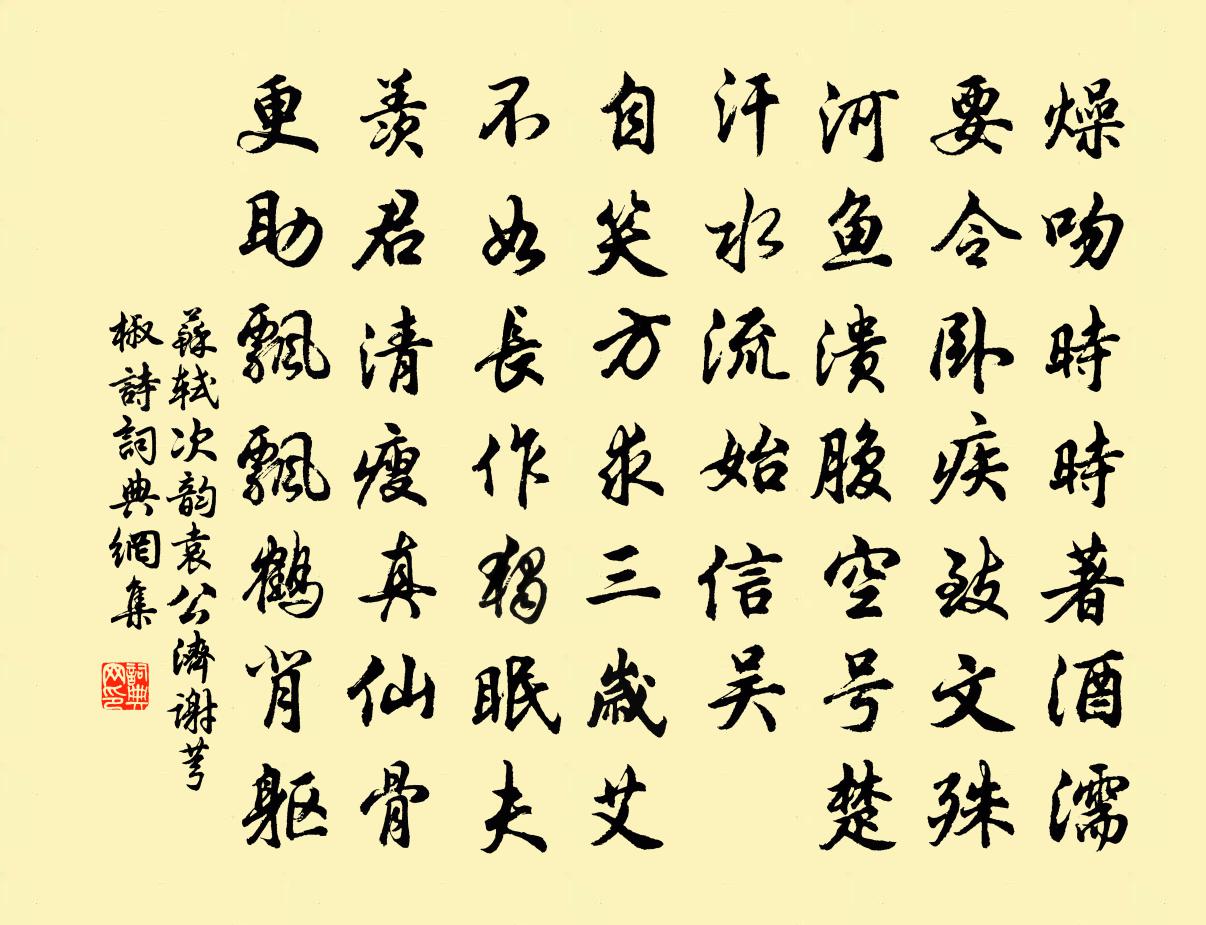 燥吻時時著酒濡
要令卧疾致文殊
河鱼溃腹空号楚
汗水流始信吴
自笑方求三歲艾
不如長作獨眠夫
羨君清瘦真仙骨
更助飄飄鶴背軀
蘇轼次韵袁公濟謝芎
椒詩詞典網集
詞典网印